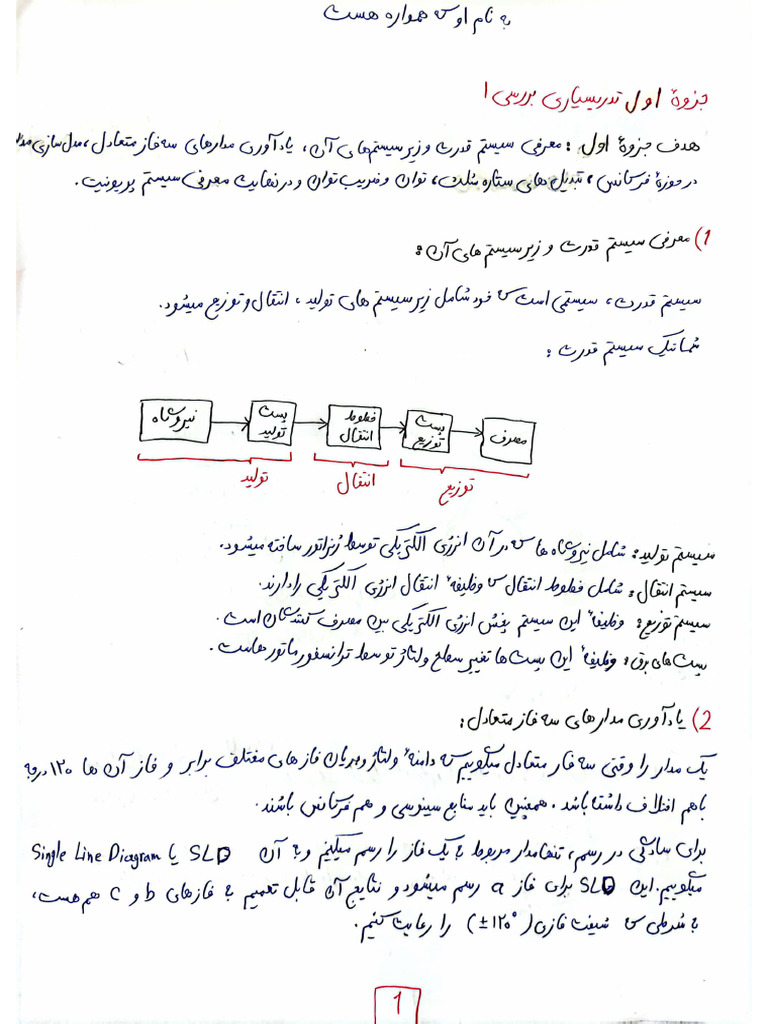 به نام او که همواره هست
جزوهٔ اول تدریسیاری بررسی ۱
هدف جزوهٔ اول : معرفی سیستم قدرت و زیر سیستم‌های آن، یادآوری مدارهای سه فاز متعادل، مدل سازی مدا
در حوزهٔ فرکانس، تبدیل های ستاره مثلث، توان و ضریب توان و در نهایت معرفی سیستم پریونیت.
1) معرفی سیستم قدرت و زیر سیستم های آن :
سیستم قدرت، سیستمی است که خود شامل زیر سیستم های تولید، انتقال و توزیع میشود.
شماتیک سیستم قدرت :
نیروگاه
پست تولید
خطوط انتقال
پست توزیع
مصرف
تولید
انتقال
توزیع
سیستم تولید: شامل نیروگاه ها که در آن انرژی الکتریکی توسط ژنراتور ساخته میشود.
سیستم انتقال : شامل خطوط انتقال که وظیفهٔ انتقال انرژی الکتریکی را دارند.
سیستم توزیع : وظیفهٔ این سیستم پخش انرژی الکتریکی بین مصرف کنندگان است.
پست های برق : وظیفهٔ این پست ها تغییر سطح ولتاژ توسط ترانسفورماتور هاست.
2) یادآوری مدارهای سه فاز متعادل:
یک مدار را وقتی سه فاز متعادل میگوییم که دامنهٔ ولتاژ و جریان فازهای مختلف برابر و فاز آن ها ۱۲۰ درجه
باهم اختلاف داشته باشد. همچنین باید منابع سینوسی و هم فرکانس باشند.
برای سادگی در رسم، تنها مدار مربوط به یک فاز را رسم میکنیم و به آن SLD یا Single Line Diagram
میگوییم. این SLD برای فاز a رسم میشود و نتایج آن قابل تعمیم به فازهای b و c هم هست،
به شرطی که شیفت فازی (±۱۲۰°) را رعایت کنیم.
1